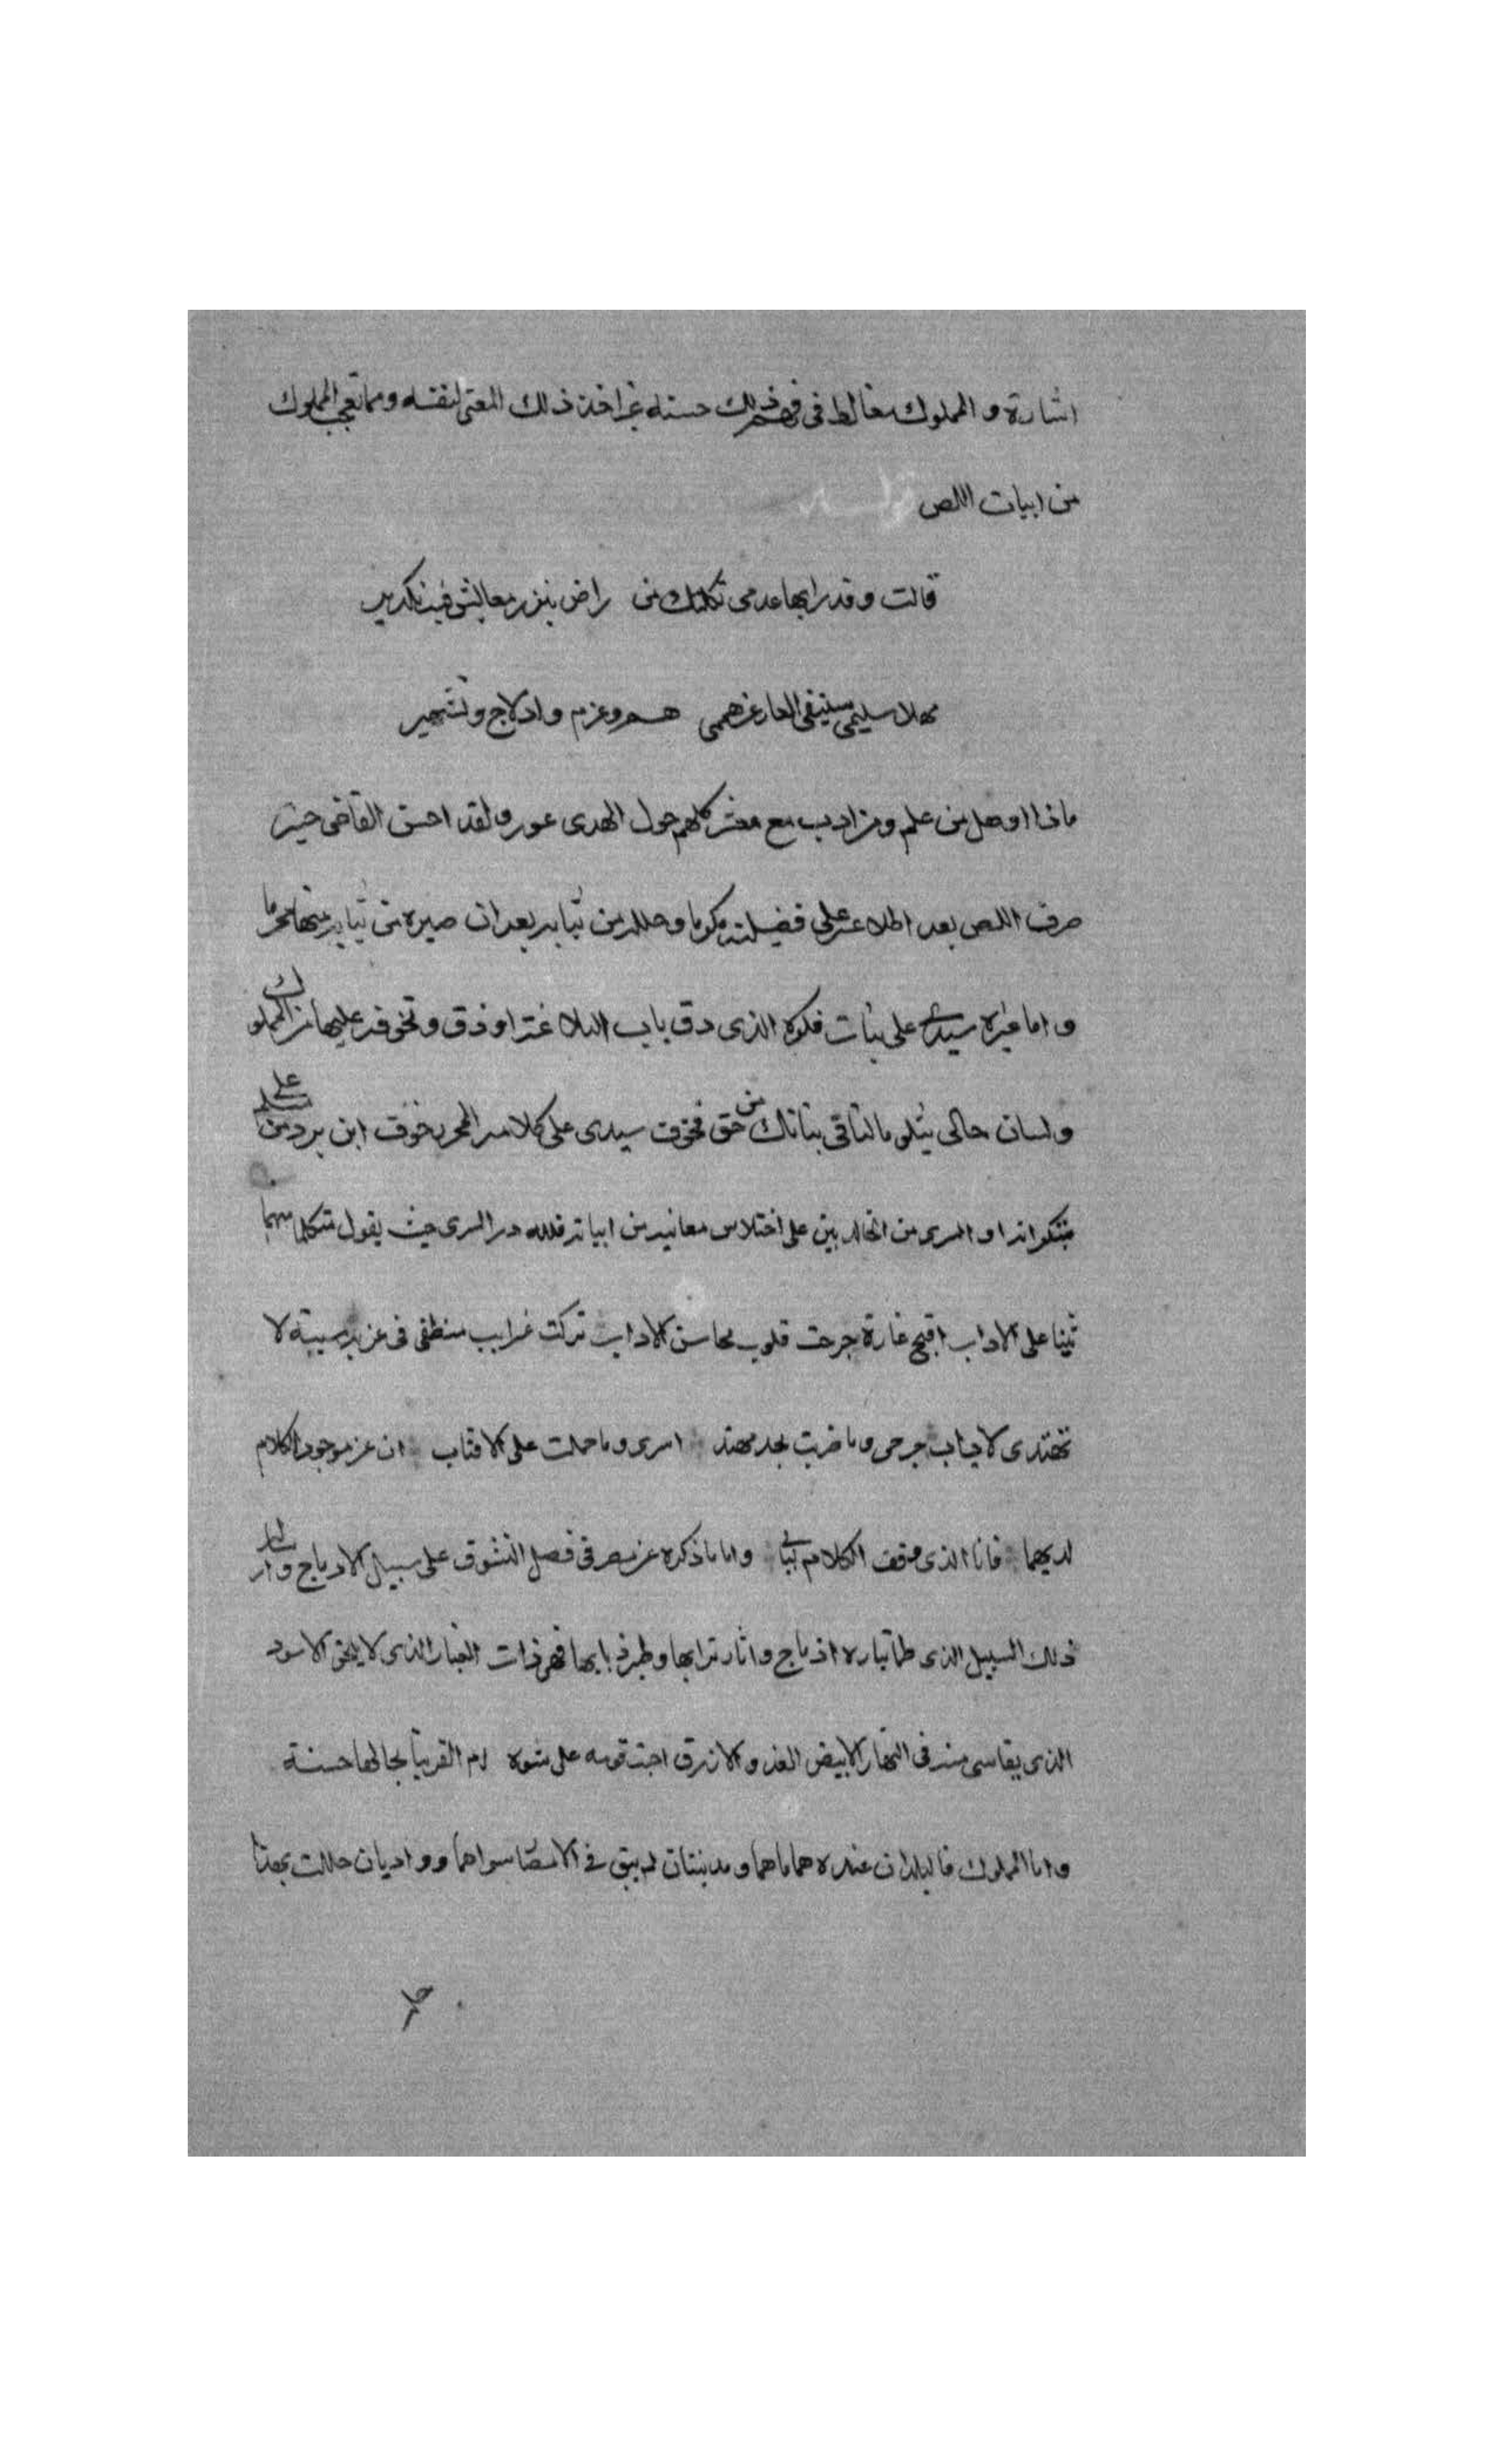 اشارة و المملوك يغالط فى فهم ذلك حسنه غير اخذ ذلك المعنى لنفسه ومما يعجب المملوك
من ابيات اللص قوله
قالت وقد رابها عدمى ثكلتك من راض بنزر معاش فيه تكدير
مهلا سليمى سينفى العار عن هممى هم وعزم وادلاج وتشمير
ماذا اوصل من علم ومن ادب مع معشر كلهم حول الهدى عور ولقد احسن القاضى حيث
صرف اللص بعد اطلاعه على فضيلته مكرما وحلله من ثيابه بعد ان صيره من ثيابه منها محرما
و اما غيرة سيدى على بنات فكره الذى دق باب البلاغة او ذق وتخوفه عليها من المملوك
ولسان حالى يتلو مالنا فى بناتك من حق فخوف سيدى على كلامه المحر خوف ابن برد من سلم على
مبتكراته او السرى من الخالديين على اختلاس معانيه من ابياته فلله در السرى حيث يقول متكلما منهما
شنا على الاداب اقبح غارة جرحت قلوب محاسن الاداب تركت غرايب منطقى فى غربة مسبية لا
تهتدى لاياب جرحى وما ضربت بحد مهند اسرى وما حملت على الاقتاب ان عز موجود الكلام
لديهما فانا الذى وقف الكلام ببابى واما ما ذكره عن مصر فى فصل التشوق على سبيل الادماج وانار
ذلك السبيل الذى طما تياره اذ ماج واثار ترابها وطير ذبابها فهى ذات الغبار الذى لا يلحق الاسود
الذى يقاسى منه فى النهار الابيض العدو الازرق اجتـ قومه على شوه ام القرينا بجالها حسنة
واما المملوك فالبلدان عنده هما ماهما ومدينتان لم يبق فى الامصار سواهما وواديان حللت بهذا